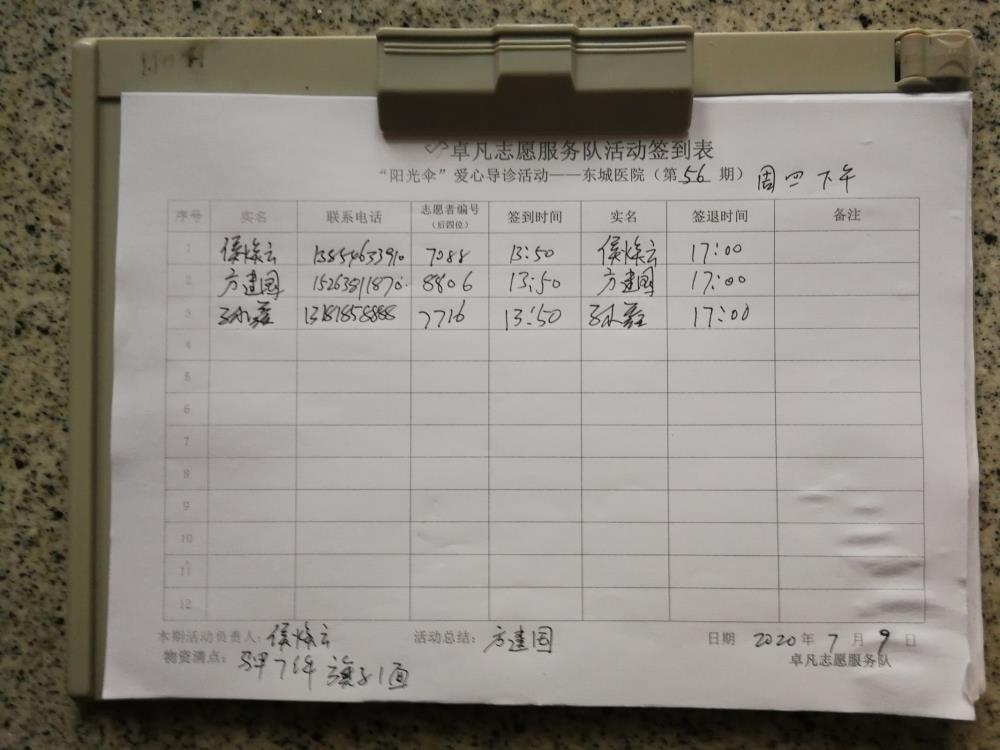 卓凡志愿服务队活动签到表
“阳光伞”爱心导诊活动——东城医院（第56期） 周四下午
序号 实名 联系电话 志愿者编号（后四位） 签到时间 实名 签退时间 备注
1 侯焕云 13854633910 7088 13:50 侯焕云 17:00
2 方建国 15263811870 8806 13:50 方建国 17:00
3 13181858888 7716 13:50 17:00
4
5
6
7
8
9
10
11
12
本期活动负责人：侯焕云 活动总结：方建国 日期 2020年7月9日
物资清点：马甲7件 旗子1面 卓凡志愿服务队